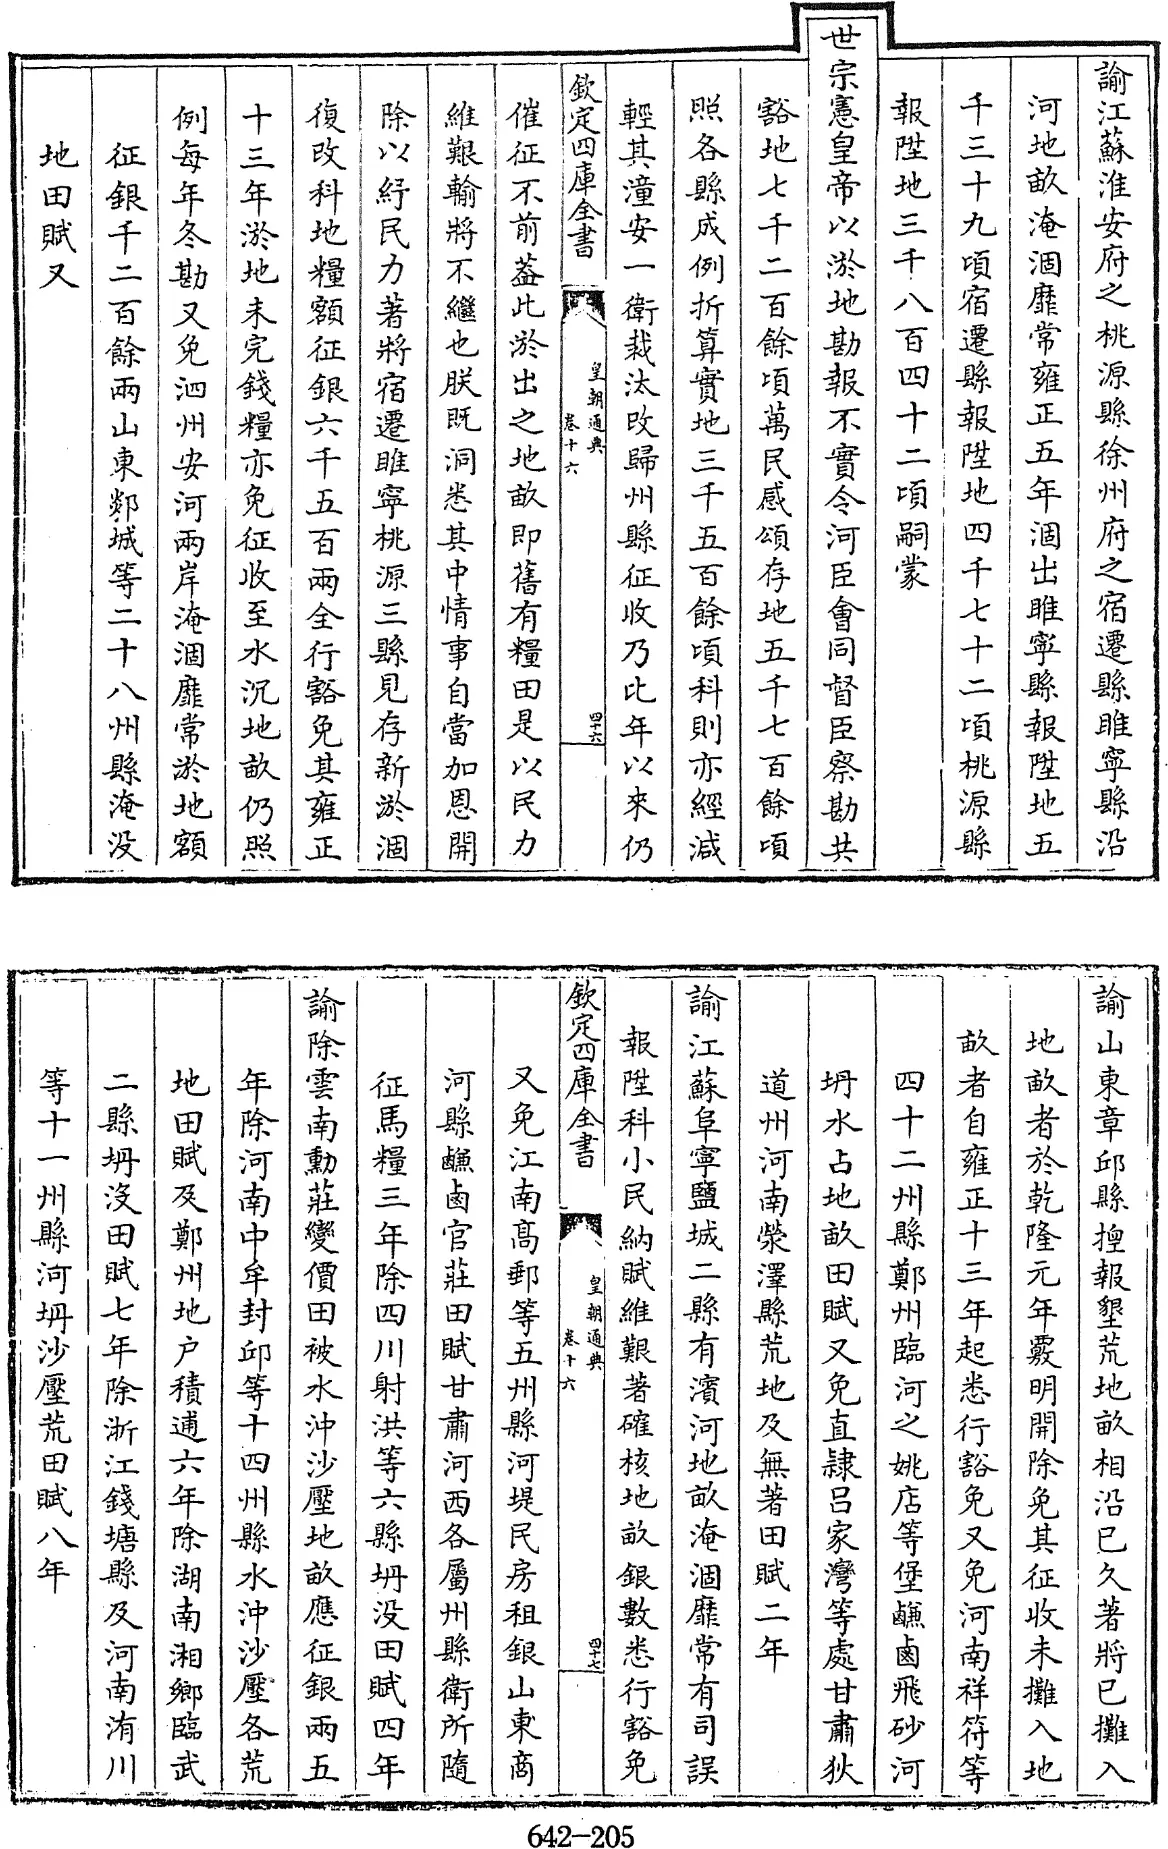 諭江蘇淮安府之桃源縣徐州府之宿遷縣睢寧縣沿
河地畝淹涸靡常雍正五年涸出睢寧縣報陞地五
千三十九頃宿遷縣報陞地四千七十二頃桃源縣
報陞地三千八百四十二頃嗣蒙
世宗憲皇帝以淤地勘報不實令河臣會同督臣察勘共
豁地七千二百餘頃萬民感頌存地五千七百餘頃
照各縣成例折算實地三千五百餘頃科則亦經減
輕其潼安一衛裁汰改歸州縣征收乃比年以來仍
欽定四庫全書 皇朝通典 卷十六 四十六
催征不前葢此淤出之地畝即舊有糧田是以民力
維艱輸將不繼也朕既洞悉其中情事自當加恩開
除以紓民力著將宿遷睢寧桃源三縣見存新淤涸
復改科地糧額征銀六千五百兩全行豁免其雍正
十三年淤地未完錢糧亦免征收至水沉地畝仍照
例每年冬勘又免泗州安河兩岸淹涸靡常淤地額
征銀千二百餘兩山東郯城等二十八州縣淹没
地田賦又
諭山東章邱縣捏報墾荒地畝相沿已久著將已攤入
地畝者於乾隆元年覈明開除免其征收未攤入地
畝者自雍正十三年起悉行豁免又免河南祥符等
四十二州縣鄭州臨河之姚店等堡鹻鹵飛砂河
坍水占地畝田賦又免直隸吕家灣等處甘肅狄
道州河南滎澤縣荒地及無著田賦二年
諭江蘇阜寧鹽城二縣有濱河地畝淹涸靡常有司誤
報陞科小民納賦維艱著確核地畝銀數悉行豁免
欽定四庫全書 皇朝通典 卷十六 四十七
又免江南高郵等五州縣河堤民房租銀山東商
河縣鹻鹵官莊田賦甘肅河西各屬州縣衛所隨
征馬糧三年除四川射洪等六縣坍没田賦四年
諭除雲南勳莊變價田被水沖沙壓地畝應征銀兩五
年除河南中牟封邱等十四州縣水沖沙壓各荒
地田賦及鄭州地户積逋六年除湖南湘鄉臨武
二縣坍沒田賦七年除浙江錢塘縣及河南洧川
等十一州縣河坍沙壓荒田賦八年
642-205